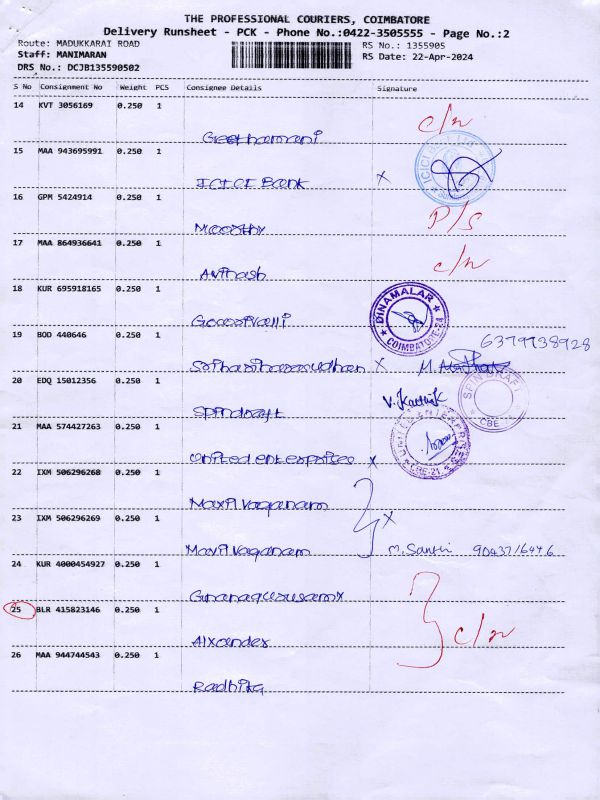 THE PROFESSIONAL COURIERS, COIMBATORE
Delivery Runsheet - PCK - Phone No.:0422-3505555 - Page No.:2
Route: MADUKKARAI ROAD
RS No.: 1355905
Staff: MANIMARAN
RS Date: 22-Apr-2024
DRS No.: DCJB135590502
S No Consignment No Weight PCS Consignee Details Signature
14 KVT 3056169 0.250 1
c/n
Geethamani
15 MAA 943695991 0.250 1
ICICI Bank x
16 GPM 5424914 0.250 1
P/S
Moorthy
17 MAA 864936641 0.250 1
c/n
18 KUR 695918165 0.250 1
DINAMALAR
COIMBATORE-24
19 BOD 440646 0.250 1
6379738928
x M.
20 EDQ 15012356 0.250 1
V. Karthik
SPINCRAFT
CBE
Spincraft
21 MAA 574427263 0.250 1
CBE-21
United enterprises x
22 IXM 506296268 0.250 1
Mayil Vaganam
23 IXM 506296269 0.250 1
x
Mayil Vaganam M. Santhi 9043716446
24 KUR 4000454927 0.250 1
Gnanagurusamy
25 BLR 415823146 0.250 1
c/n
Alxander
26 MAA 944744543 0.250 1
Radhika